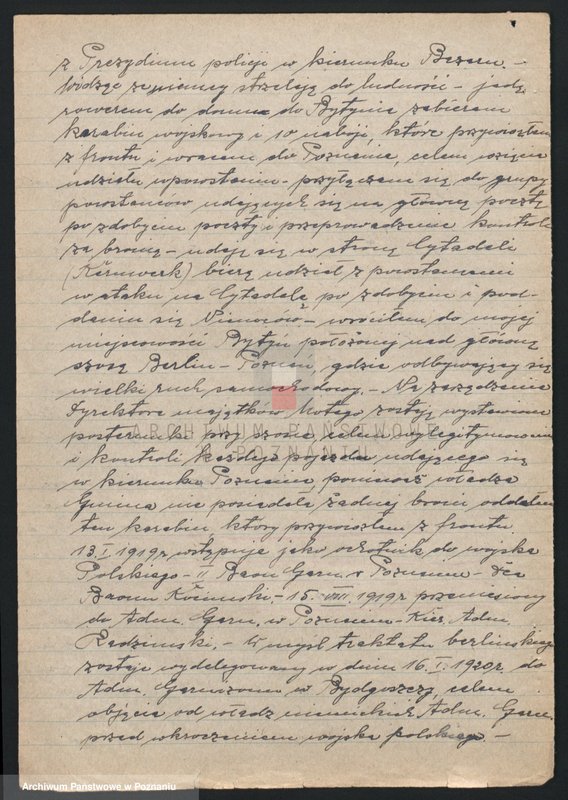 z Prezydium policji w kierunku Bazaru –
widząc że niemcy strzelają do ludności – jadę
rowerem do domu do Bytynia zabieram
karabin wojskowy i 10 naboji, które przywiozłem
z frontu i wracam do Poznania, celem wzięcia
udziału w powstaniu – przyłączam się do grupy
powstańców udających się na główną pocztę
po zdobyciu poczty i przeprowadzenia kontroli
za bronią – udaję się w stronę Cytadeli
(Kernwerk) biorę udział z powstańcami
w ataku na Cytadelę po zdobyciu i pod-
daniu się Niemców – wróciłem do mojej
miejscowości Bytyń położony nad główną
szosą Berlin – Poznań, gdzie odbywający się
wielki ruch samochodowy. – Na zarządzenie
Dyrektora majątków zostają wystawione
posterunki przy szosie celem wylegitymowania
i kontroli każdego pojazdu udającego się
w kierunku Poznania, ponieważ władza
Gmina nie posiadała żadnej broni oddałem
ten karabin który przywiozłem z frontu
13.I.1919r wstępuję jako ochotnik do wojska
Polskiego – II Baon Garn. w Poznaniu –
Baonu – 15. VIII 1919r przeniesiony
do Adm. Garn. w Poznaniu – Kier. Adm.
Radzimski. – W myśl traktatu berlińskiego
zostaję wydelegowany w dniu 16.I.1920r do
Adm. Garnizonu w Bydgoszczy, celem
objęcia od władz niemieckich Adm. Garn.
przed wkroczeniem wojska polskiego. –
ARCHIWUM PAŃSTWOWE
W POZNANIU
Archiwum Państwowe w Poznaniu